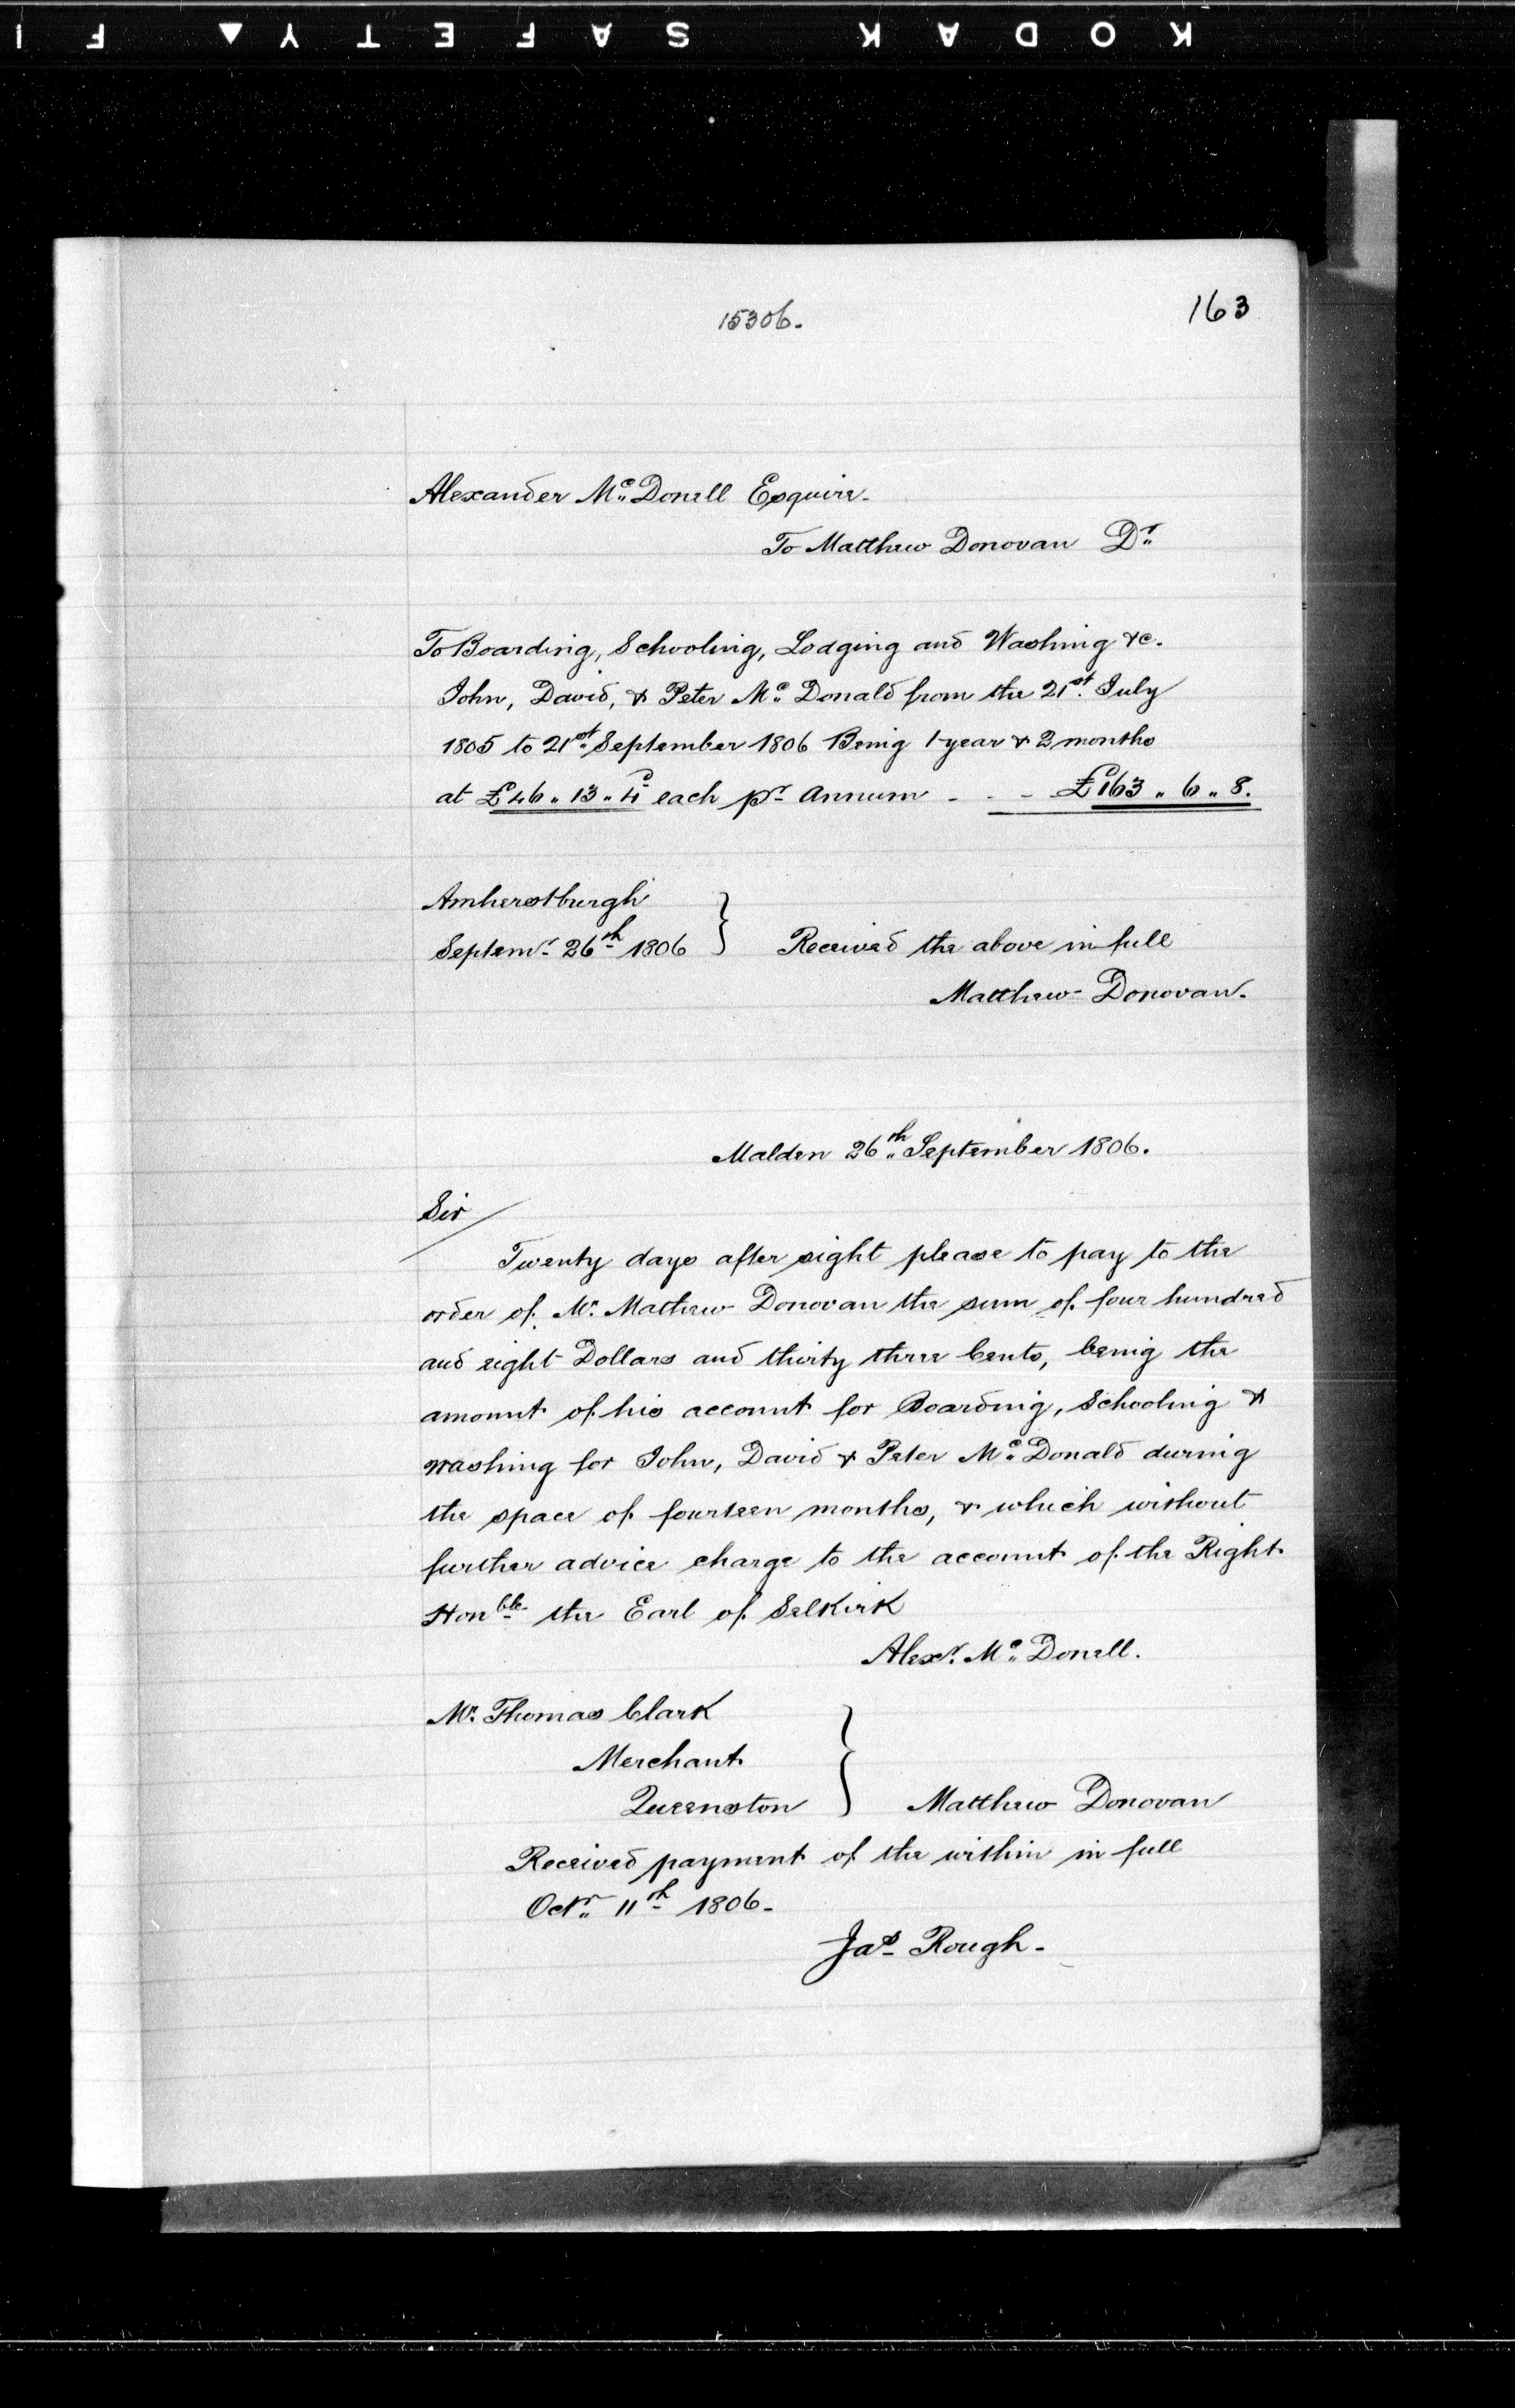 KODAK SAFETY▲FI
15306.
163
Alexander Mc. Donell Esquire.
To Matthew Donovan Dr.
To Boarding, Schooling, Lodging and Washing &c.
John, David, & Peter Mc. Donald from the 21st. July
1805 to 21st. September 1806 Being 1 year & 2 months
at £46 " 13 " 4 each pr. Annum - - - £163 " 6 " 8.
Amherstburgh
Septemr. 26th 1806 } Received the above in full
Matthew Donovan.
Malden 26th. September 1806.
Sir/
Twenty days after sight please to pay to the
order of Mr. Mathew Donovan the sum of four hundred
and eight Dollars and thirty three Cents, being the
amount of his account for Boarding, Schooling &
washing for John, David & Peter Mc. Donald during
the space of fourteen months, & which without
further advice charge to the account of the Right
Honble the Earl of Selkirk
Alexr. Mc. Donell.
Mr. Thomas Clark
Merchant
Queenston } Matthew Donovan
Received payment of the within in full
Octr. 11th 1806.
Jas Rough.